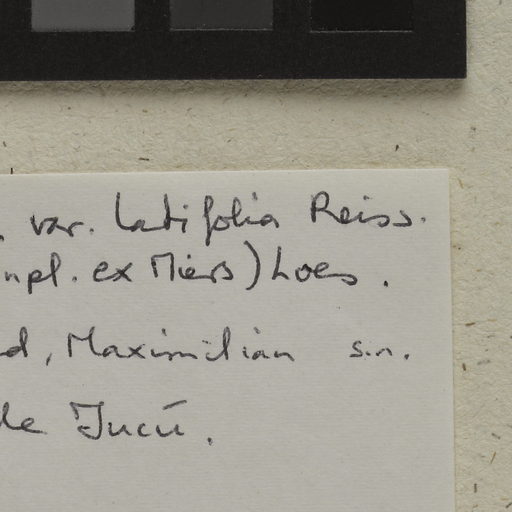 . var. latifolia Reiss.
npl. ex Miers) Loes.
d, Maximilian s.n.
de Jucú.